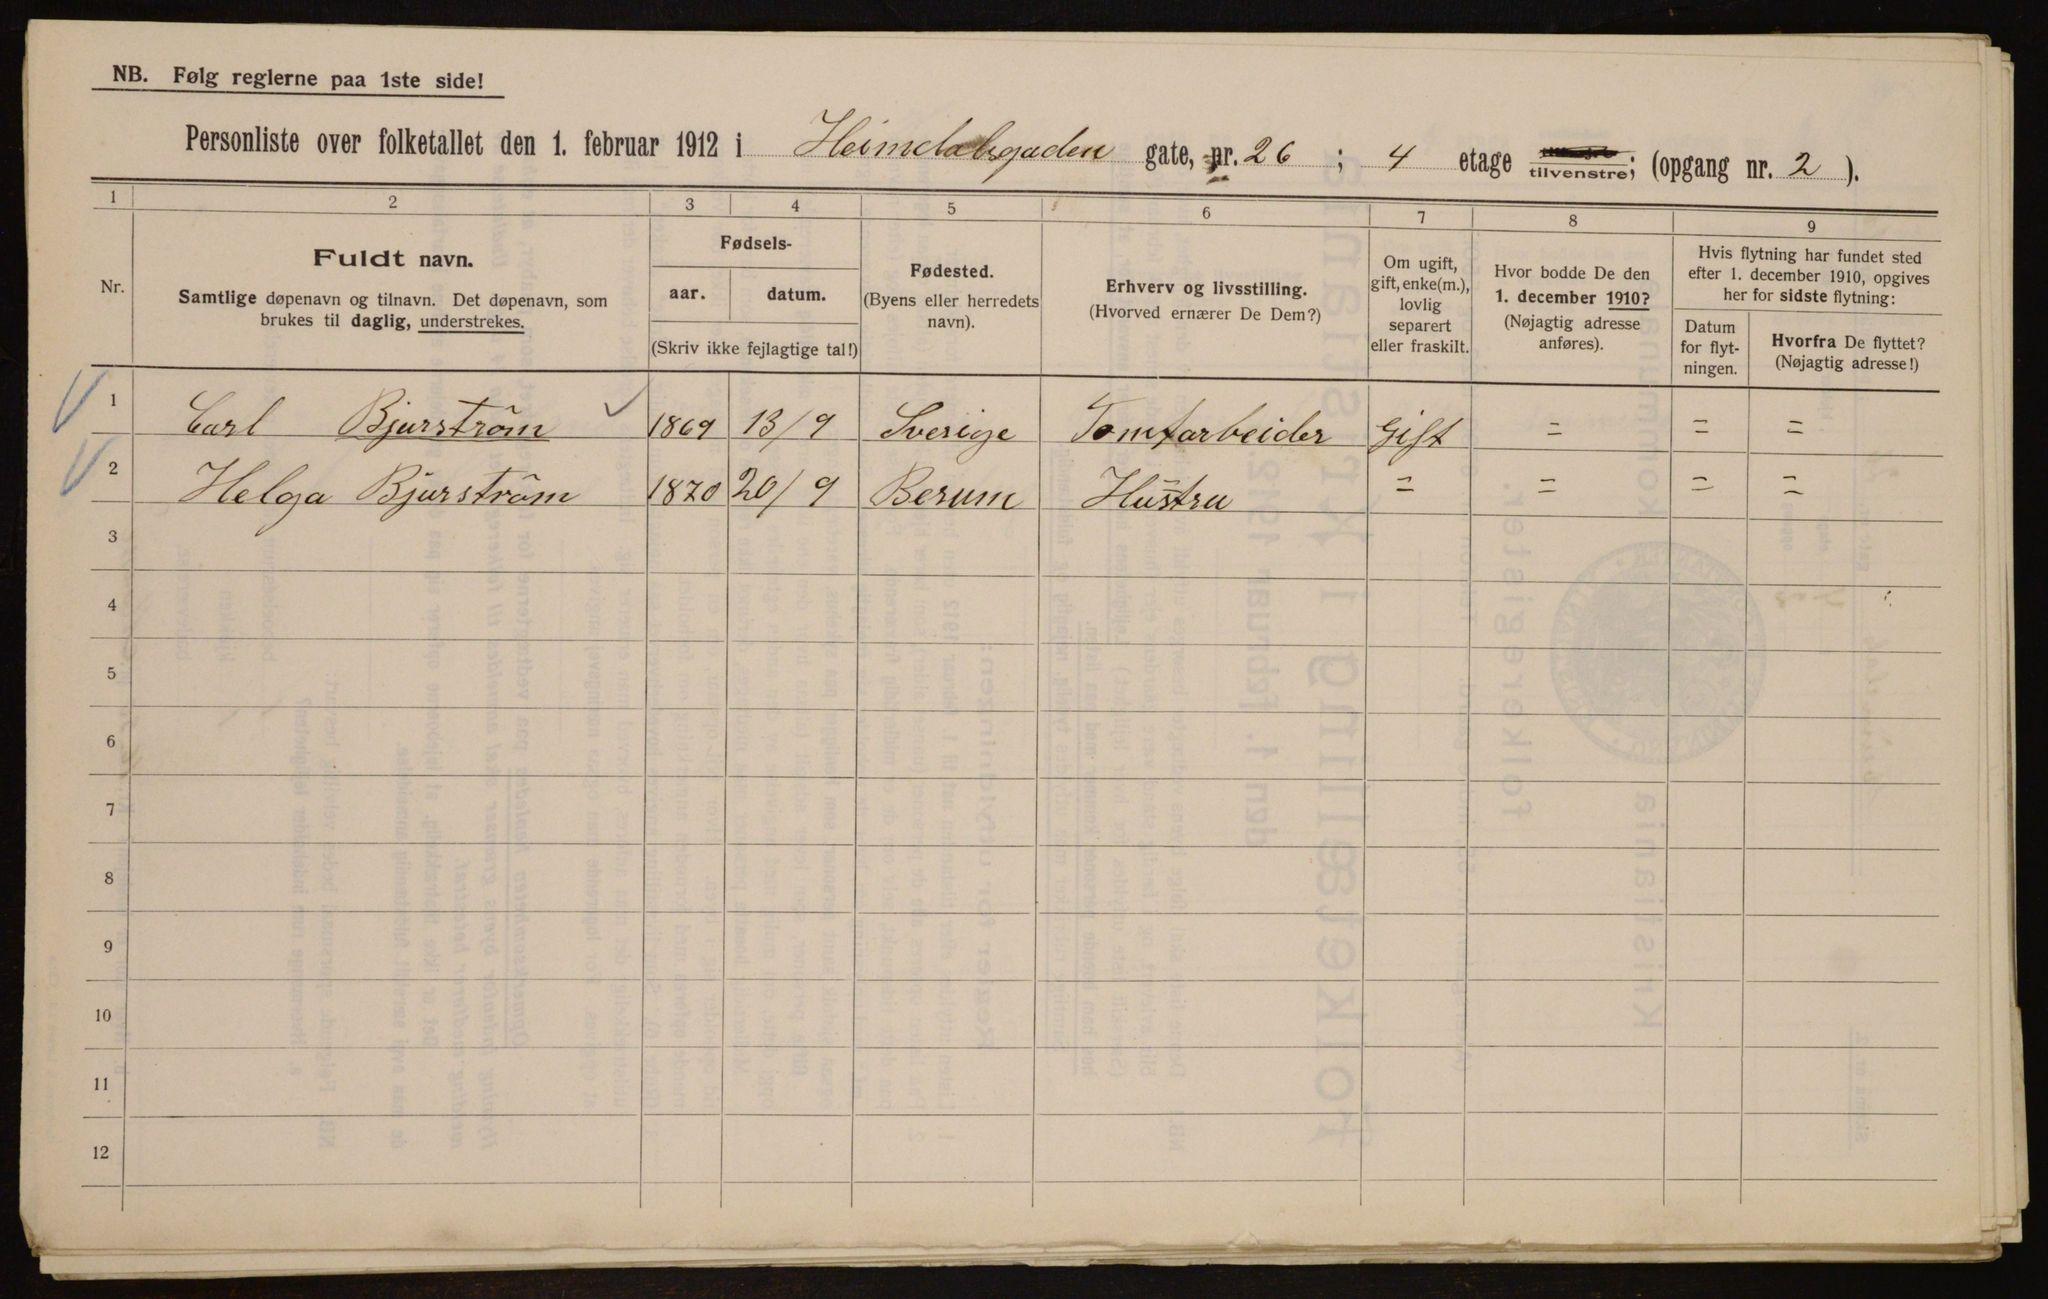 NB. Følg reglerne paa 1ste side!
Personliste over folketallet den 1. februar 1912 i Heimdalsgaden gate, nr. 26 ; 4 etage tilvenstre; (opgang nr. 2 ).
1 2 3 4 5 6 7 8 9
Nr.
Fuldt navn.
Samtlige døpenavn og tilnavn. Det døpenavn, som
brukes til daglig, understrekes.
Fødsels-
aar. datum.
(Skriv ikke fejlagtige tal!)
Fødested.
(Byens eller herredets
navn).
Erhverv og livsstilling.
(Hvorved ernærer De Dem?)
Om ugift,
gift, enke(m.),
lovlig
separert
eller fraskilt.
Hvor bodde De den
1. december 1910?
(Nøjagtig adresse
anføres).
Hvis flytning har fundet sted
efter 1. december 1910, opgives
her for sidste flytning:
Datum
for flyt-
ningen.
Hvorfra De flyttet?
(Nøjagtig adresse!)
1 Carl Bjurström 1869 13/9 Sverige Tomtarbeider Gift = = =
2 Helga Bjurström 1870 20/9 Berum Hustru = = = =
3
4
5
6
7
8
9
10
11
12